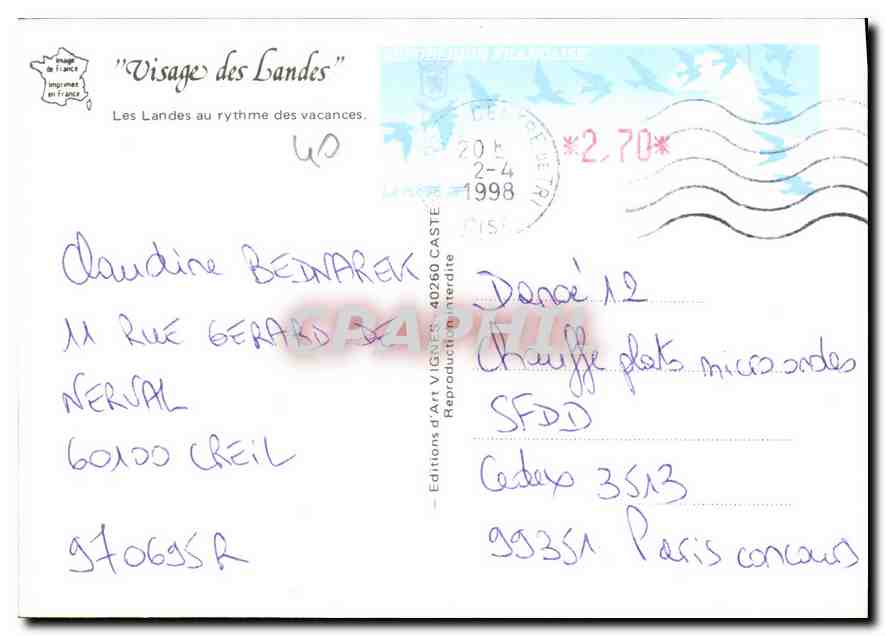 Image
de France
Imprimée
en France
"Visage des Landes"
Les Landes au rythme des vacances.
40
CENTRE DE TRI
20 h
2-4
1998
OISE
*2,70*
Claudine BEDNAREK
11 RUE GERARD DE
NERVAL
60100 CREIL
970695R
— Editions d'Art VIGNES - 40260 CASTE
Reproduction interdite
CPAPHIL
Danoé 12
Chauffe plats micro ondes
SFDD
Cedex 3513
99351 Paris concours